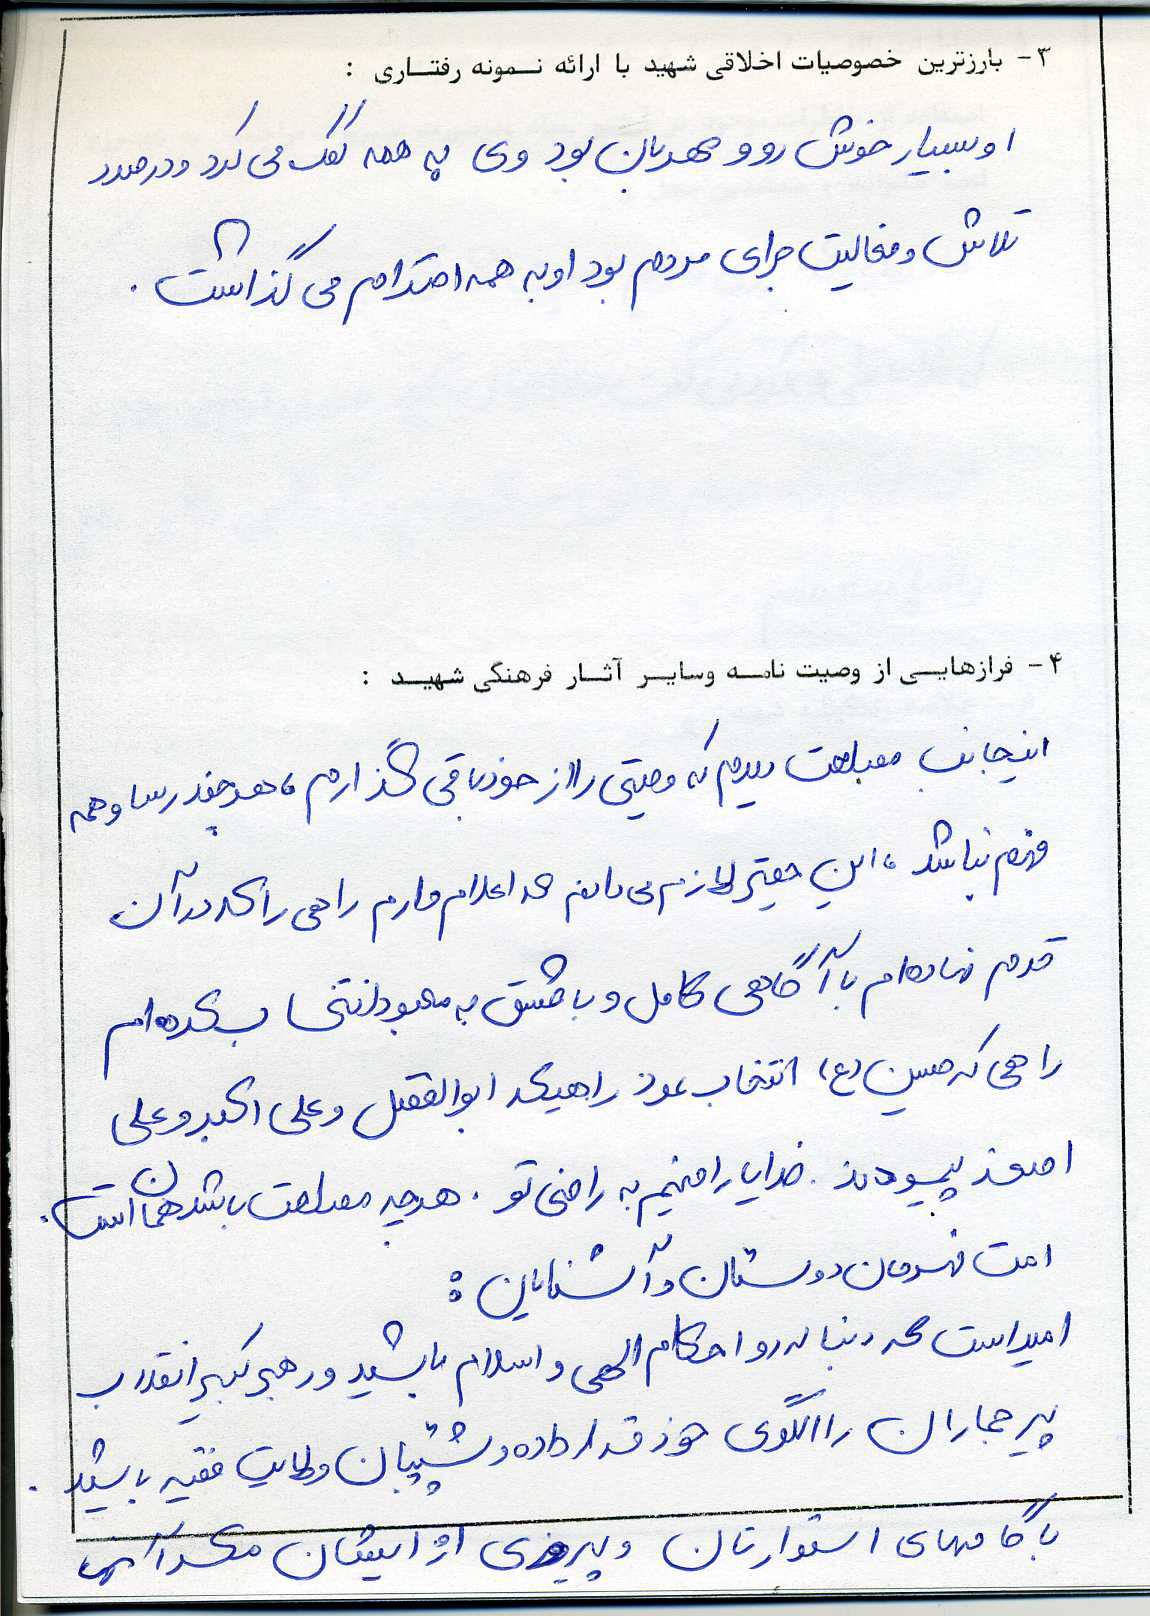 ۳- بارزترین خصوصیات اخلاقی شهید با ارائه نمونه رفتاری :
او بسیار خوش رو و مهربان بود وی به همه کمک می کرد و درصدد
تلاش و فعالیت برای مردم بود او به همه احترام می گذاشت .
۴- فرازهایی از وصیت نامه وسایر آثار فرهنگی شهید :
اینجانب مصلحت دیدم که وصیتی را از خود باقی گذارم ، هرچند رسا و همه
فهم نباشد ، این حقیر لازم می دانم که اعلام دارم راهی را که در آن
قدم نهاده ام با آگاهی کامل و با عشق به معبود انتخاب کرده ام
راهی که حسین (ع) انتخاب نمود راهیکه ابوالفضل و علی اکبر و علی
اصغر پیمودند . خدایا راضیم به رضای تو . هرچه مصلحت باشد همان است .
امت قهرمان دوستان و آشنایان :
امید است که دنباله رو احکام الهی و اسلام باشید و رهبر کبیر انقلاب
پیر جماران را الگوی خود قرار داده و پشتیبان ولایت فقیه باشید .
با گامهای استوارتان و پیروزی از ایشان